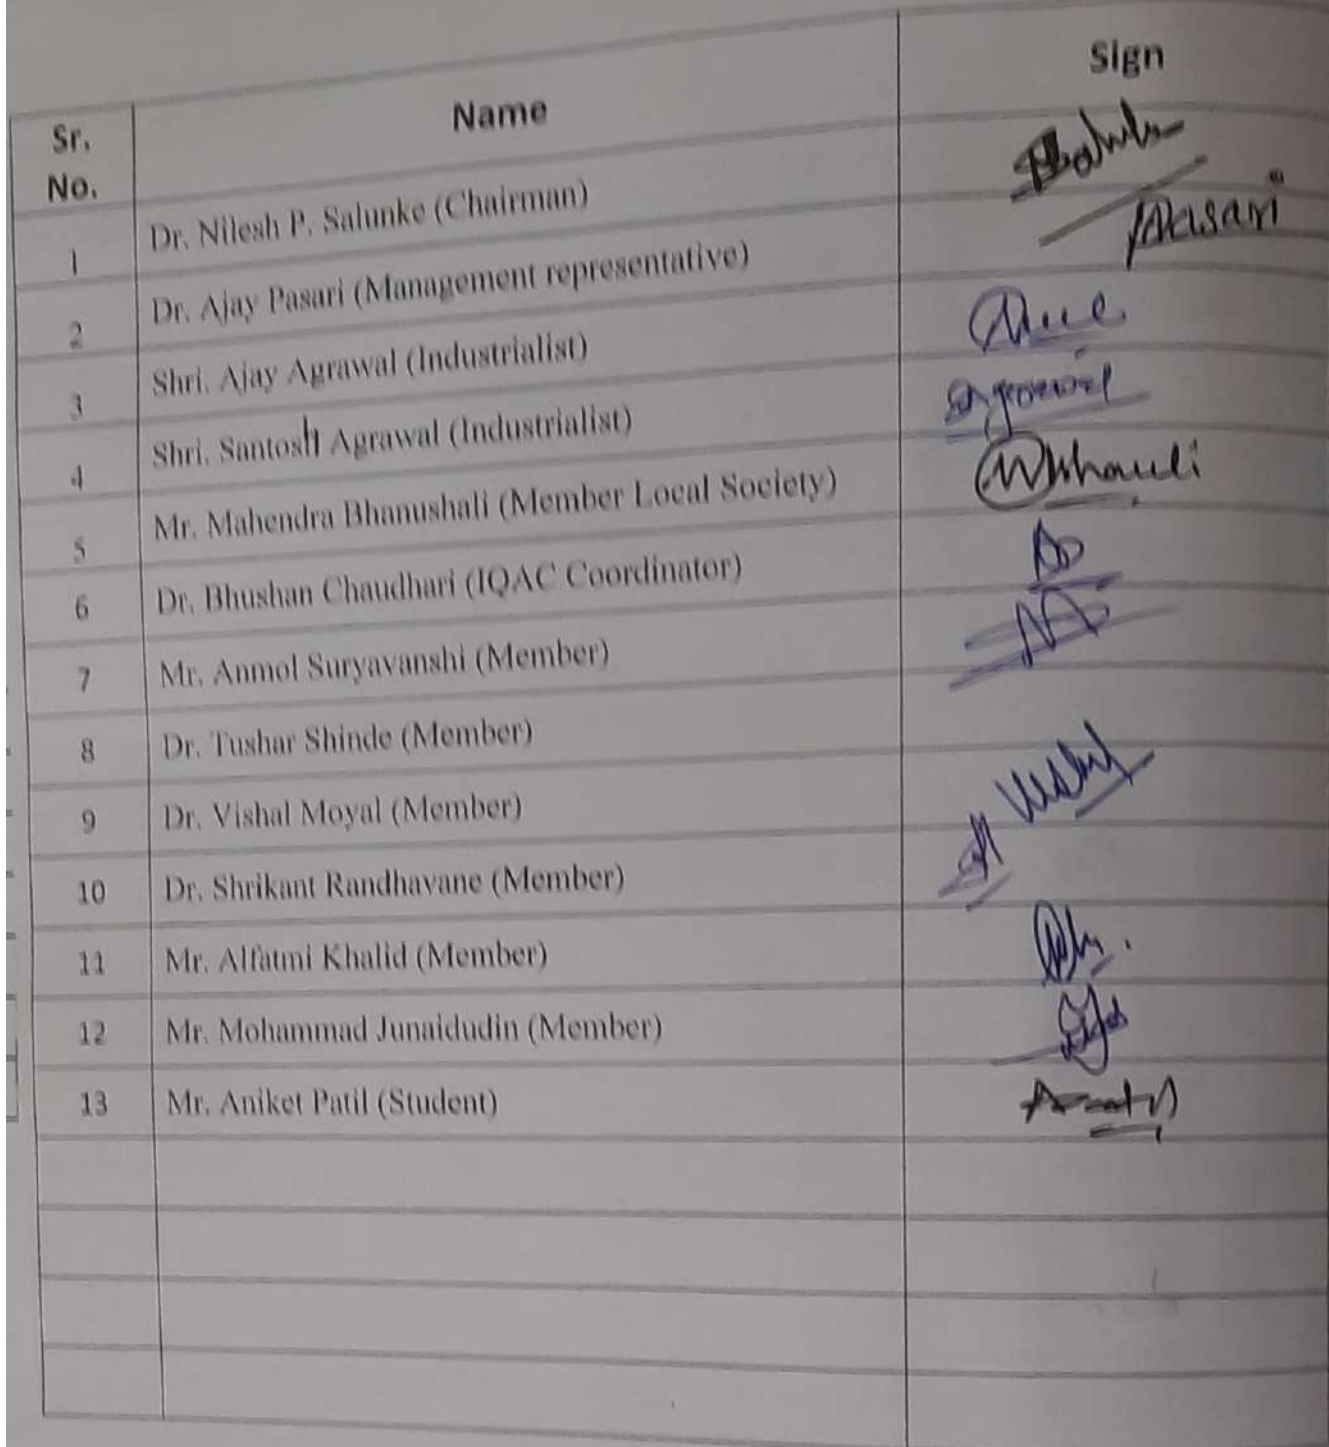 Sr. No. Name Sign
1 Dr. Nilesh P. Salunke (Chairman)
2 Dr. Ajay Pasari (Management representative) Pasari
3 Shri. Ajay Agrawal (Industrialist)
4 Shri. Santosh Agrawal (Industrialist) Agrawal
5 Mr. Mahendra Bhanushali (Member Local Society)
6 Dr. Bhushan Chaudhari (IQAC Coordinator)
7 Mr. Anmol Suryavanshi (Member)
8 Dr. Tushar Shinde (Member)
9 Dr. Vishal Moyal (Member)
10 Dr. Shrikant Randhavane (Member)
11 Mr. Alfatmi Khalid (Member)
12 Mr. Mohammad Junaidudin (Member)
13 Mr. Aniket Patil (Student)